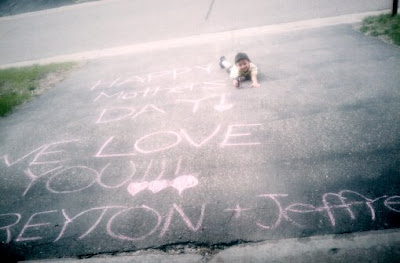 HAPPY
Mothers
DAY!
WE LOVE
YOU!!!
REYTON + Jeffre